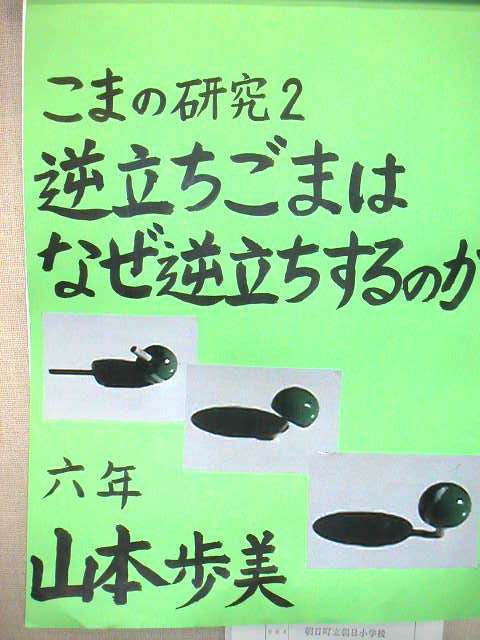 こまの研究2
逆立ちごまは
なぜ逆立ちするのか
六年
山本歩美
朝日町立朝日小学校